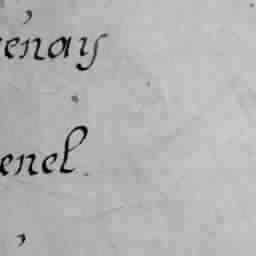 enay
enel